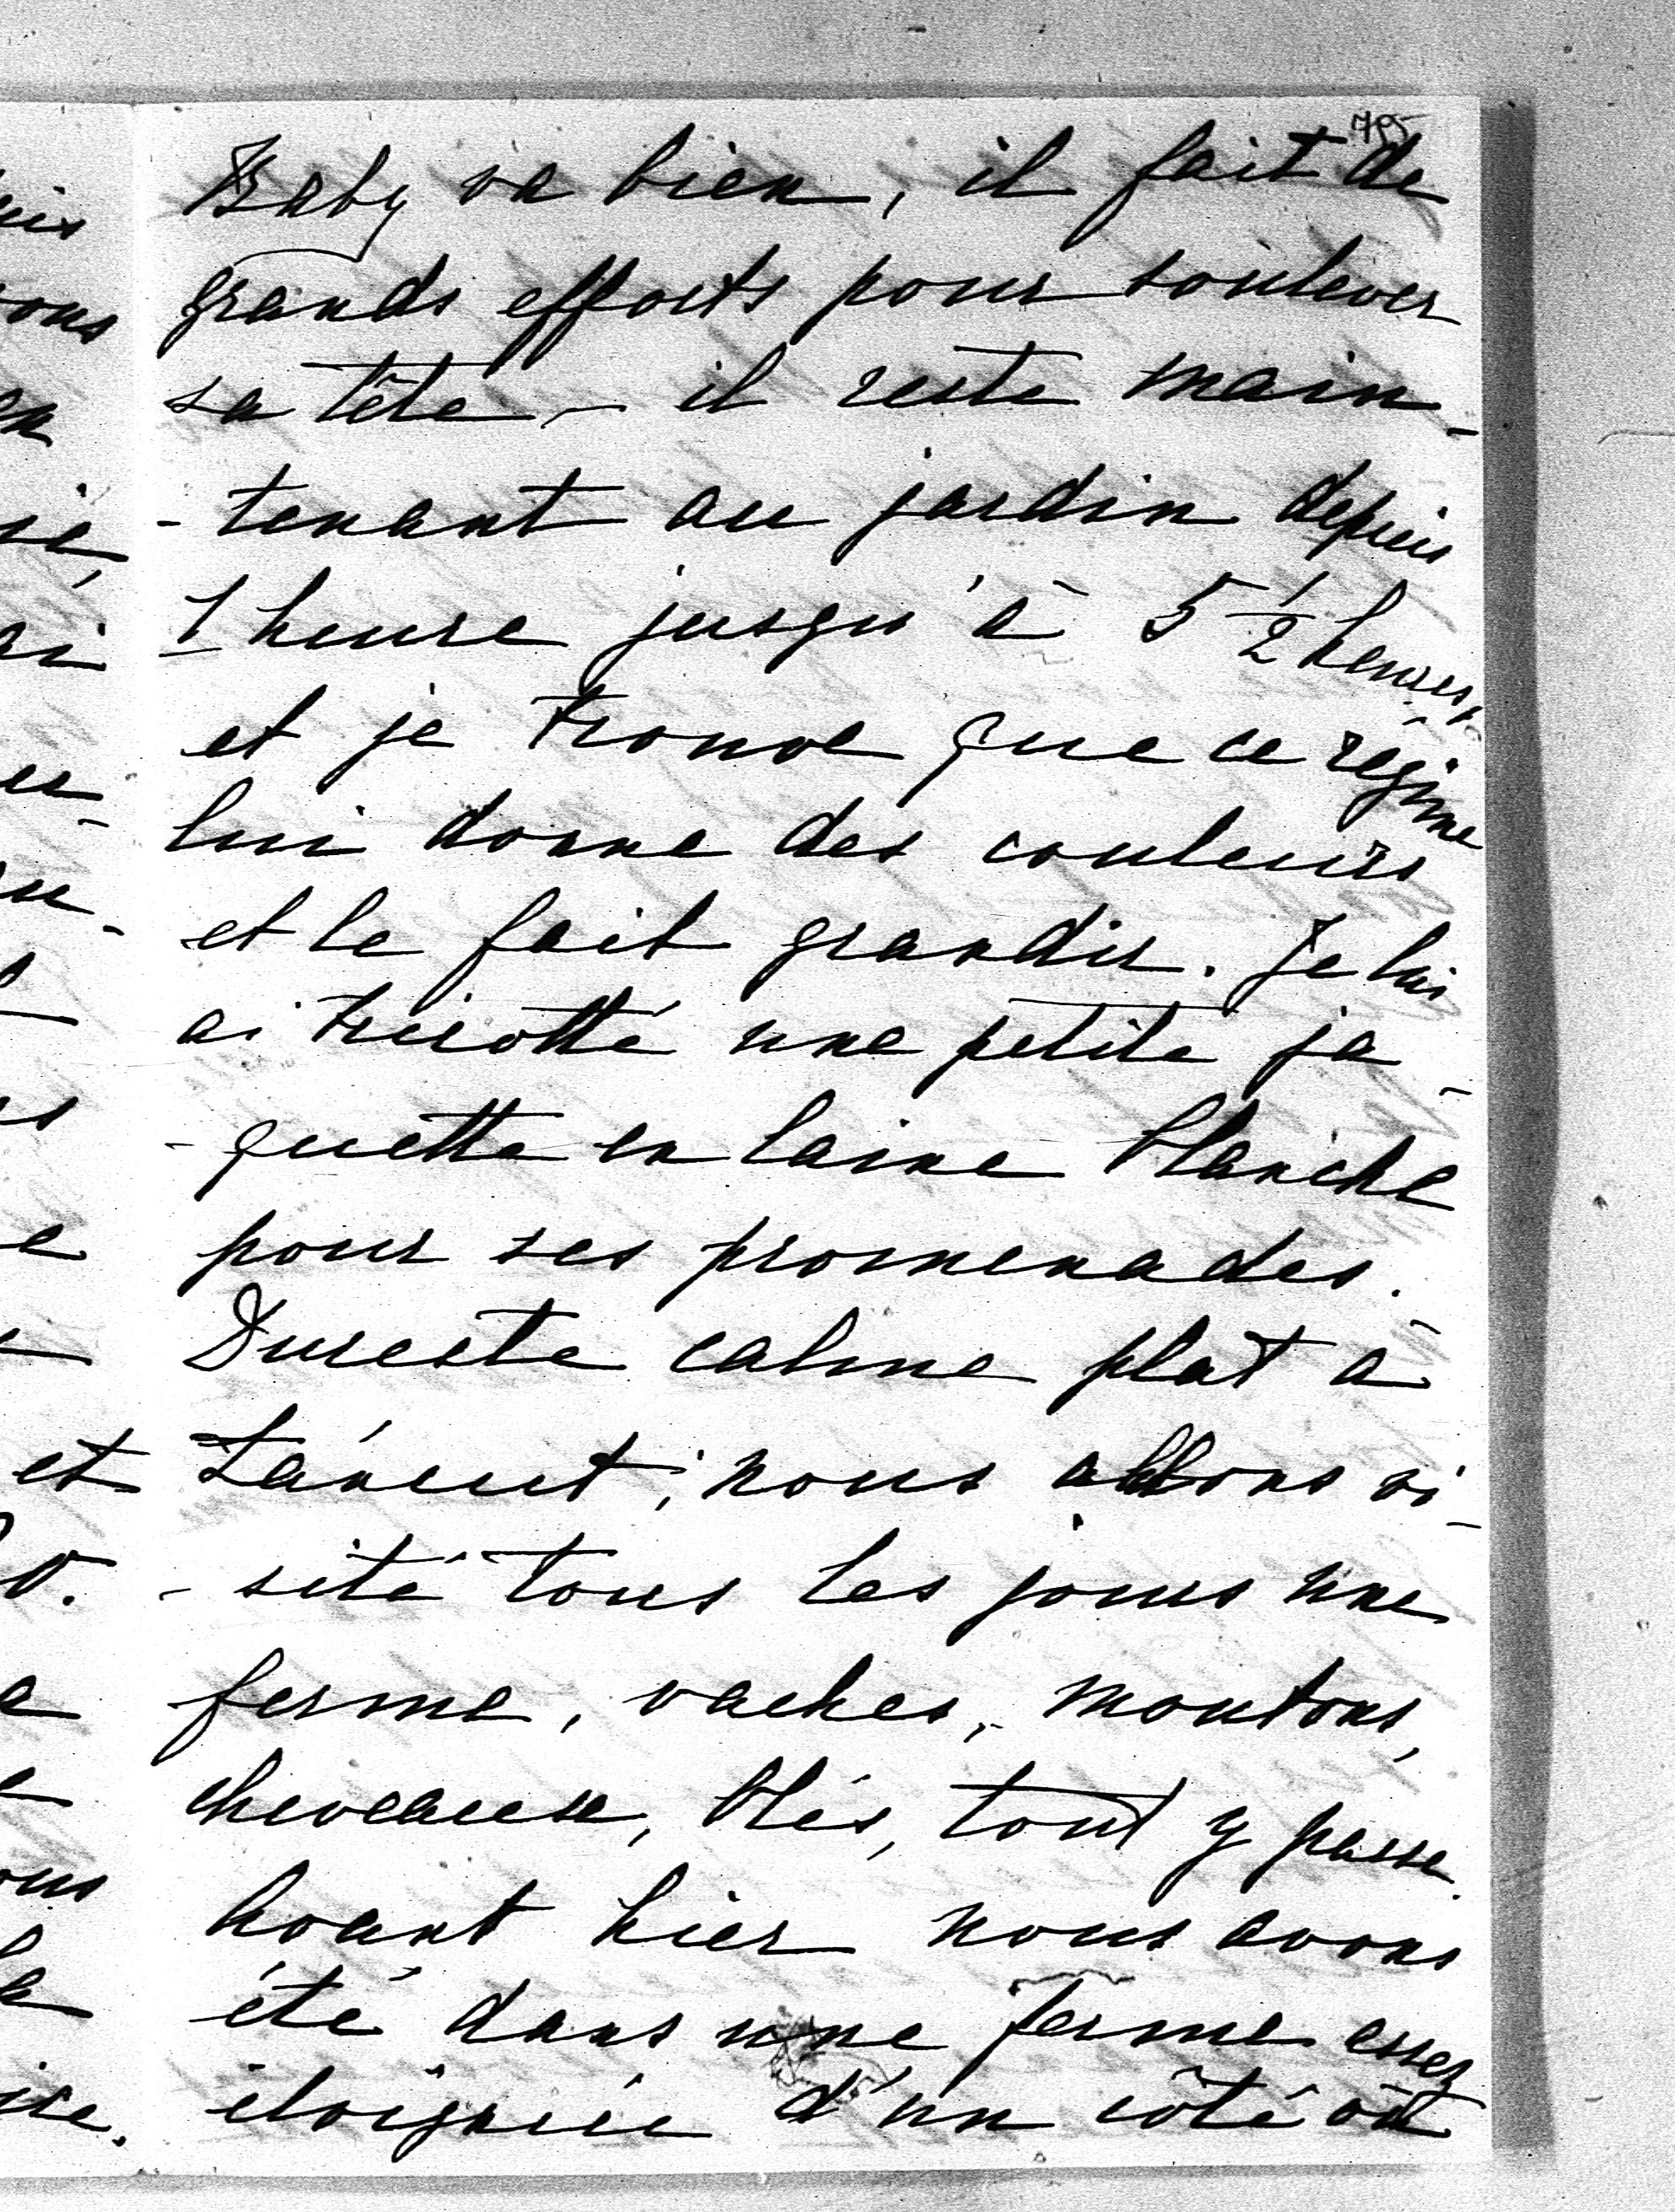 795
Baby va bien, il fait de
grands efforts pour soulever
sa tête – il reste main-
-tenant au jardin depuis
1 heure jusqu'à 5 1/2 heures,
et je trouve que ce régime
lui donne des couleurs
et le fait grandir. Je lui
ai tricotté une petite ja-
-quette en laine blanche
pour ses promenades. -
Dureste calme plat à
nous allons vi-
-sité tous les jours une
ferme, vaches, moutons,
cheveaux, blés, tout y passe.
hier nous avons
été dans une ferme assez
éloignée d'un côté où